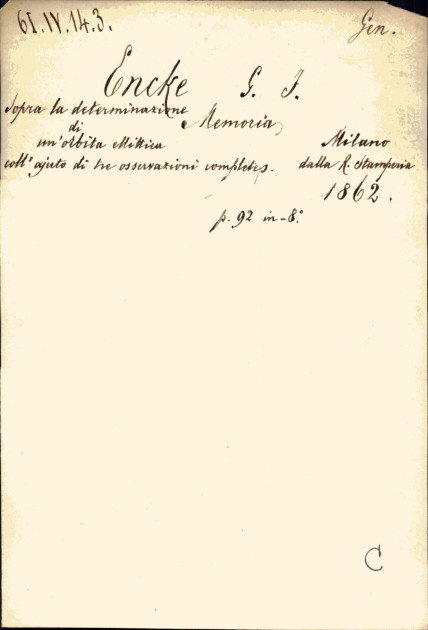 61.IV.14.3.
Gen.
Encke G. F.
Sopra la determinazione
di
un'orbita ellittica
coll'ajuto di tre osservazioni complete.
Memoria
Milano
dalla R. Stamperia
1862.
p. 92 in-8°.
C